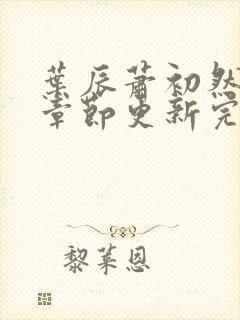 葉辰蕭初然
章節更新完
黎萊恩